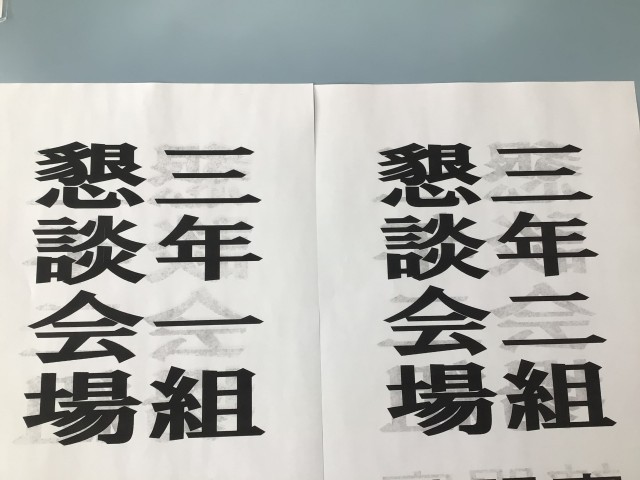 三年一組
懇談会場
三年二組
懇談会場